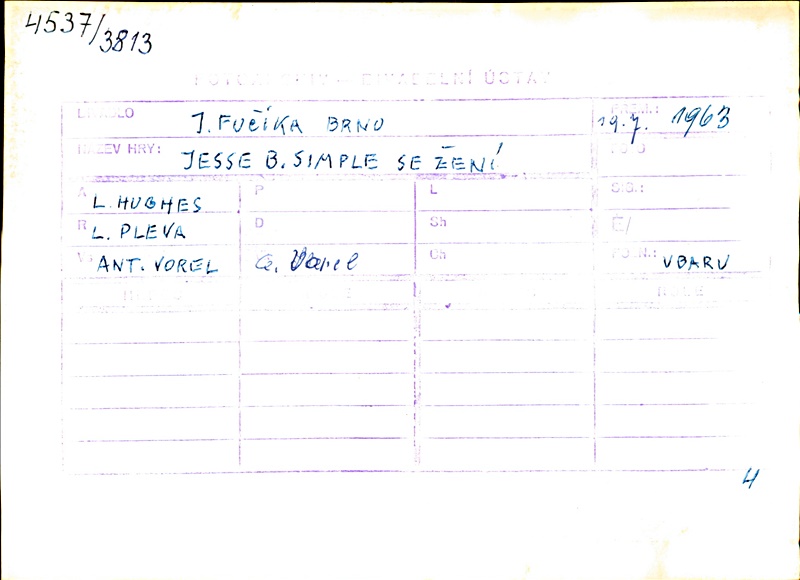 4537/3813
DIVADELNÍ ÚSTAV
DIVADLO J. FUČÍKA BRNO 19.7. 1963
NÁZEV HRY: JESSE B. SIMPLE SE ŽENÍ
A L. HUGHES P L S.S.:
R L. PLEVA D Sh Č/
V ANT. VOREL Ch V BARU
4